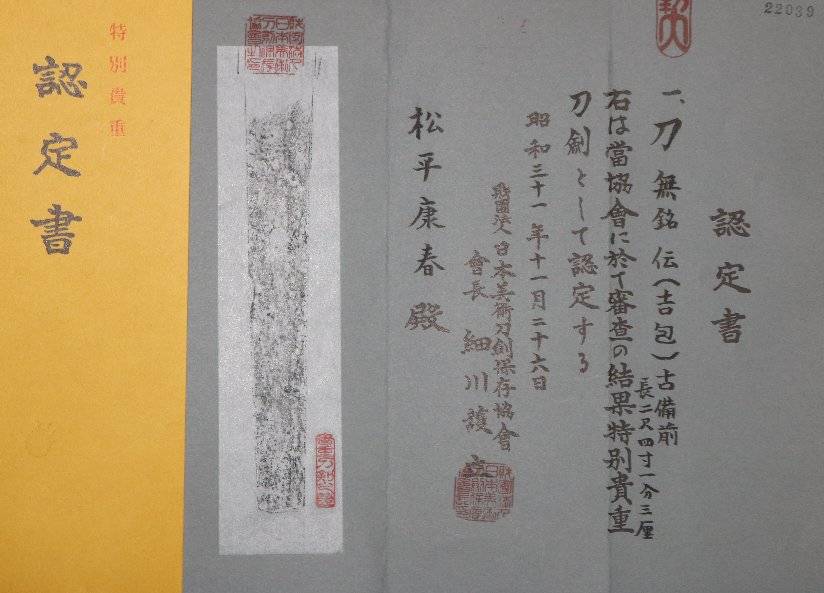 22039
認定書
一、刀 無銘 伝(吉包)古備前
長二尺四寸一分三厘
右は當協會に於て審査の結果特別貴重
刀劍として認定する
昭和三十一年十一月二十六日
財團法人日本美術刀劍保存協會
會長 細川護立
松平康春殿
特別貴重
認定書